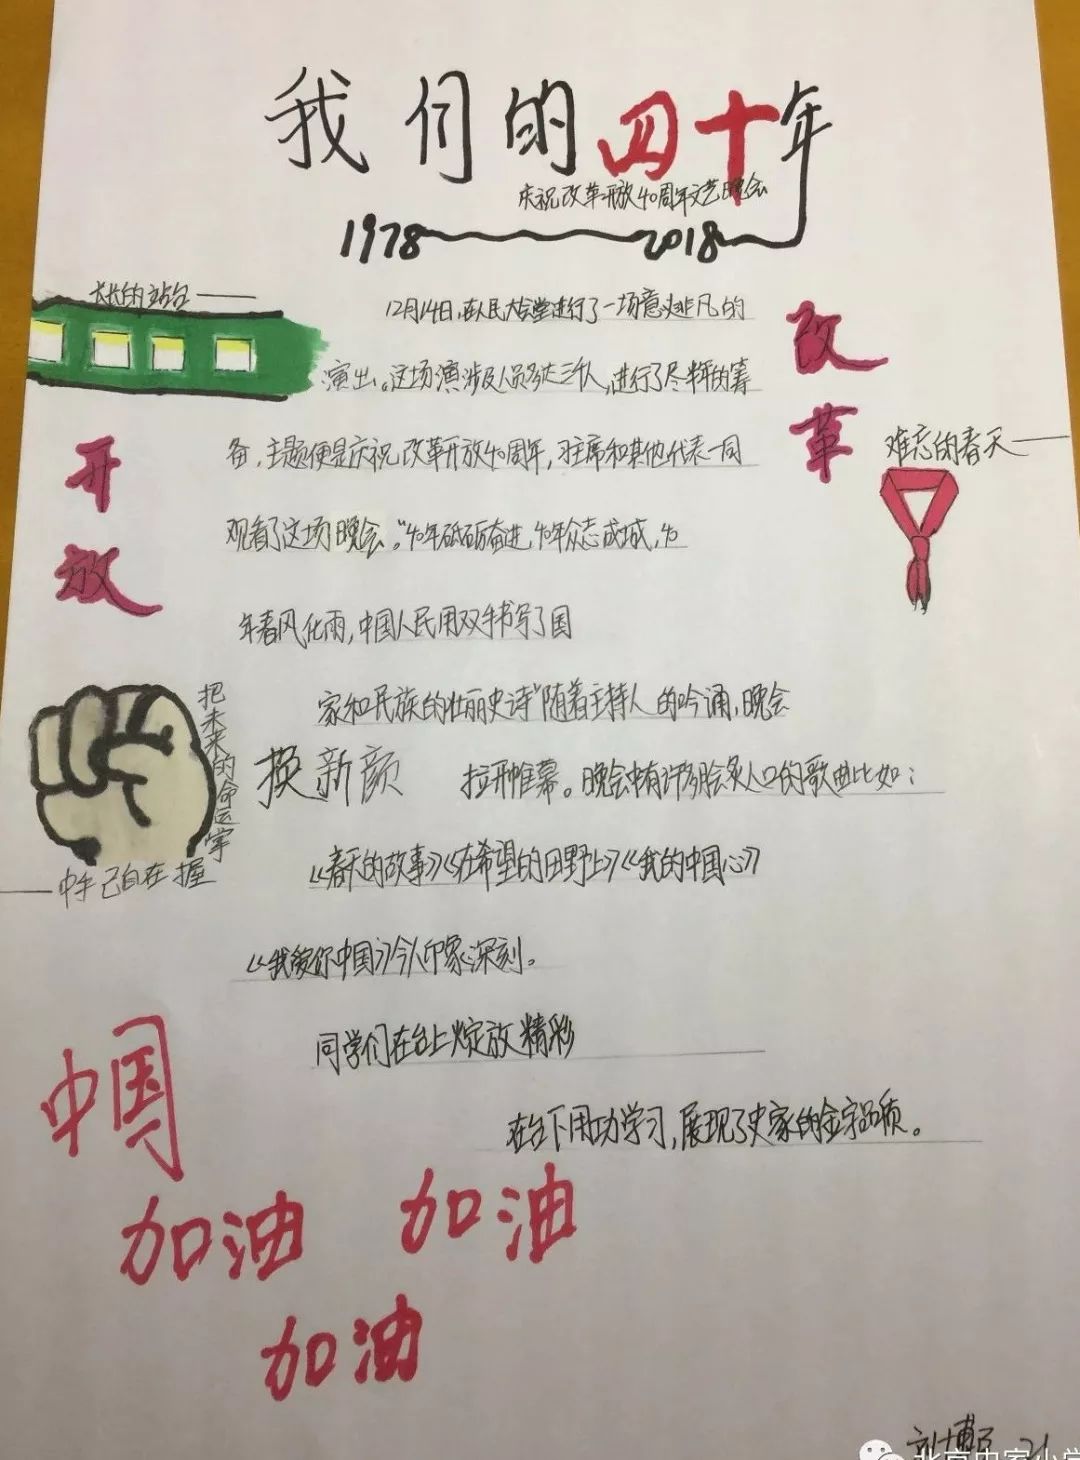 我们的四十年
庆祝改革开放40周年文艺晚会
1978 2018
长长的站台——
12月14日,在人民大会堂进行了一场意义非凡的
演出。这场演涉及人员多达三千人,进行了尽半年的筹
备,主题便是庆祝改革开放40周年,习主席和其他代表一同
观看了这场晚会。“40年砥砺奋进,40年众志成城,40
年春风化雨,中国人民用双手书写了国
家和民族的壮丽史诗”随着主持人的吟诵,晚会
拉开帷幕。晚会中有许多脍炙人口的歌曲比如:
《春天的故事》《在希望的田野上》《我的中国心》
《我爱你中国》令人印象深刻。
同学们在台上绽放精彩
在台下用功学习,展现了史家的金字品质。
改革
开放
难忘的春天——
把未来的命运掌
——中手己自在握
换新颜
中国
加油 加油
加油
北京史家小学